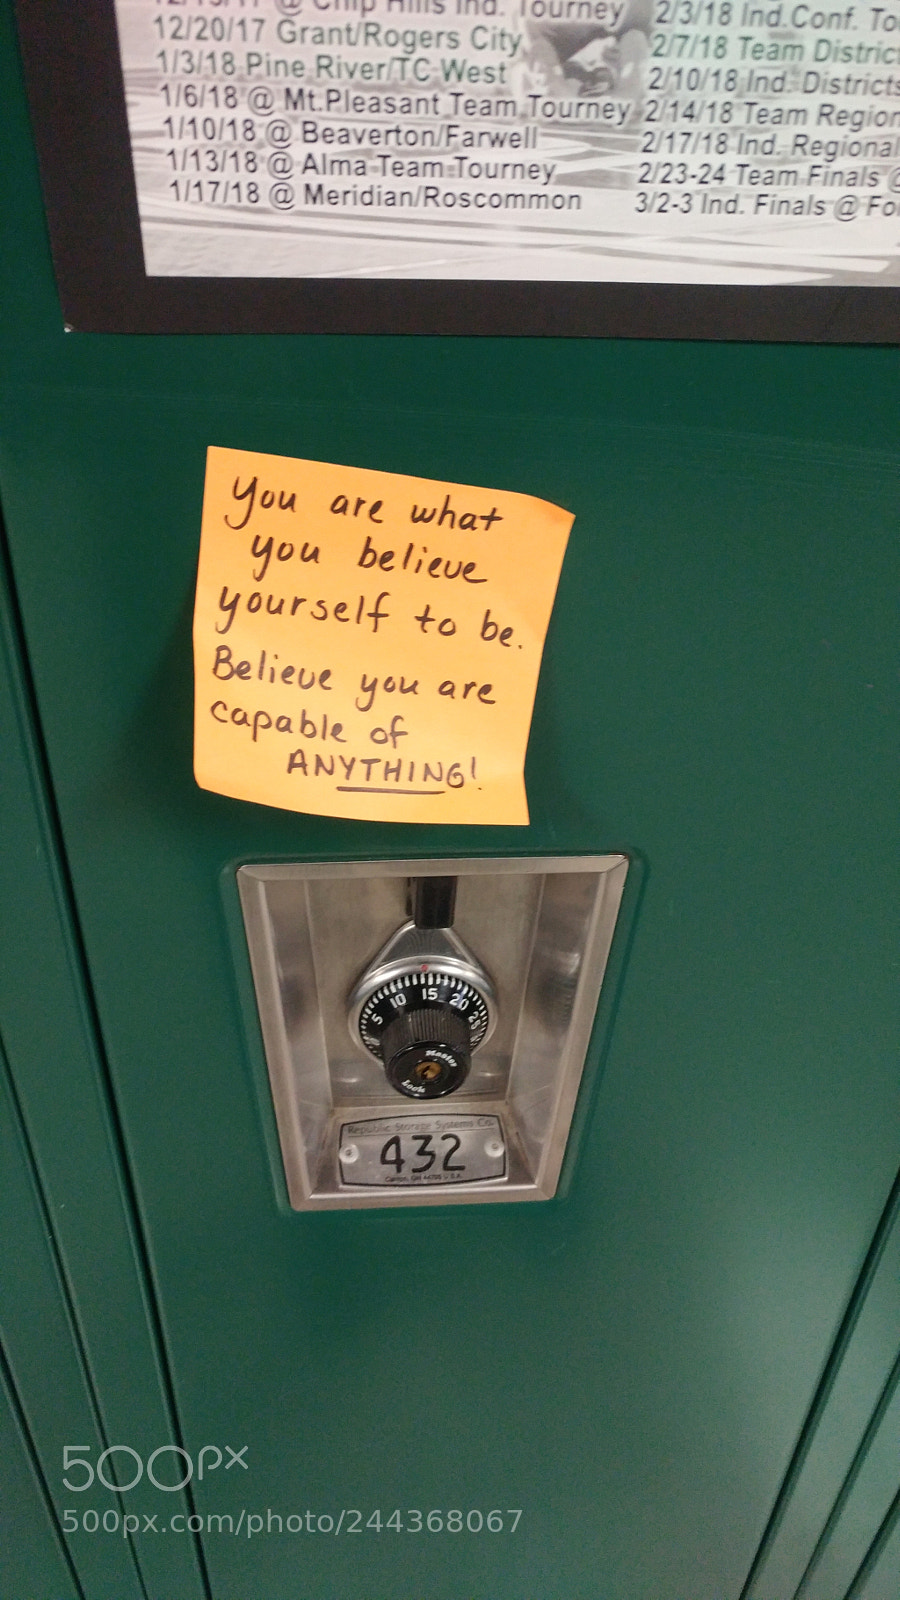 @ Chip Hills Ind. Tourney
12/20/17 Grant/Rogers City
1/3/18 Pine River/TC West
1/6/18 @ Mt.Pleasant Team Tourney
1/10/18 @ Beaverton/Farwell
1/13/18 @ Alma Team Tourney
1/17/18 @ Meridian/Roscommon
2/3/18 Ind.Conf.
2/7/18 Team
2/10/18 Ind. Districts
2/14/18 Team
2/17/18 Ind.
2/23-24 Team Finals @
3/2-3 Ind. Finals @
You are what
you believe
yourself to be.
Believe you are
capable of
ANYTHING!
5 10 15 20 25
Master
Lock
Republic Storage Systems Co.
432
Canton, OH 44705 U.S.A.
500px
500px.com/photo/244368067